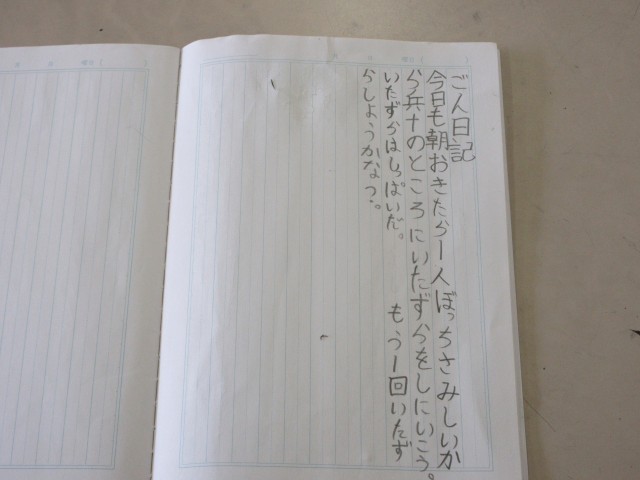 ごん日記
今日も朝おきたら一人ぼっちさみしいか
ら兵十のところにいたずらをしにいこう。
いたずらはしっぱいだ。　もう一回いたず
らしようかなっ。